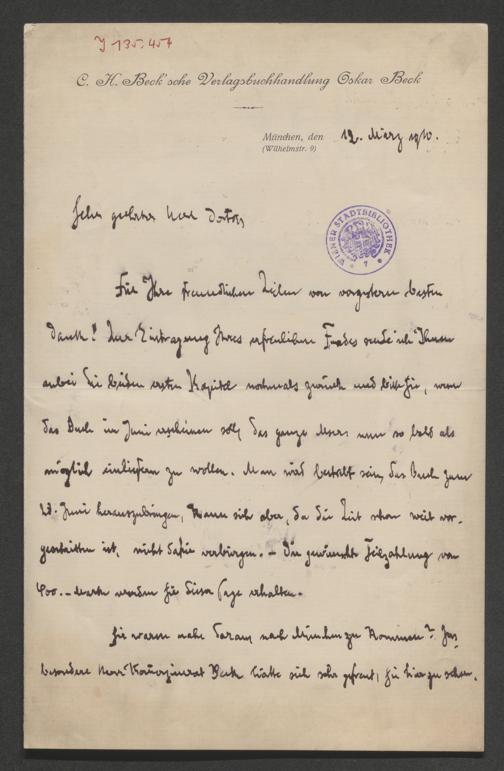 J 135.457
C. H. Beck'sche Verlagsbuchhandlung Oskar Beck
München, den 12. März 1910.
(Wilhelmstr. 9)
WIENER STADTBIBLIOTHEK
Sehr geehrter Herr Doktor,
Für Ihre freundlichen Zeilen von vorgestern besten
Dank! Zur Eintragung Ihres erfreulichen Fundes sende ich Ihnen
anbei die beiden ersten Kapitel nochmals zurück und bitte Sie, wenn
das Buch im Juni erscheinen soll, das ganze nun so bald als
möglich einliefern zu wollen. Man wird bestrebt sein, das Buch zum
23. Juni herauszubringen, kann sich aber, da die Zeit schon weit vor-
geschritten ist, nicht dafür verbürgen. – Die gewünschte Teilzahlung von
400.– Mark werden Sie dieser Tage erhalten.
Sie waren nahe daran nach München zu kommen? Ins-
besondere Herr Kommerzienrat Beck hätte sich sehr gefreut, Sie hier zu sehen.